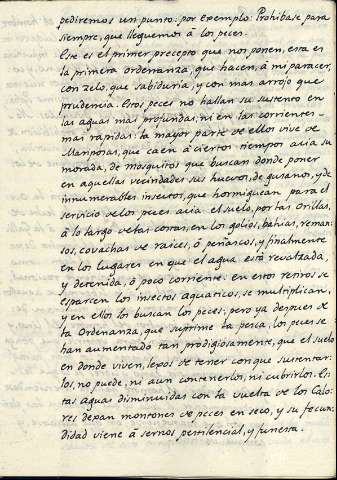 pediremos un punto. por Exemplo: Prohibase para
siempre, que lleguemos à los peces.
Este es el primer precepto que nos ponen, esta es
la primera ordenanza, que hacen, à mi parecer,
con zelo, que sabiduria, y con mas arrojo que
prudencia. Estos peces no hallan su sustento en
las aguas mas profundas, ni en las corrientes
mas rapidas: la mayor parte de ellos vive de
Mariposas, que caen à ciertos tiempos acia su
morada, de mosquitos que buscan donde poner
en aquellas vecindades sus huevos, de gusanos, y de
innumerables insectos, que hormiguean para el
servicio de los peces acia el suelo, por las orillas,
à lo largo de las costas, en los golfos, bahias, reman-
sos, covachas de raices, ò peñascos, y finalmente
en los lugares en que el agua està rebalzada,
y detenida, ò poco corriente. en estos retiros se
esparcen los insectos aquaticos, se multiplican,
y en ellos los buscan los peces; pero ya despues de
la Ordenanza, que suprime la pesca, los peces se
han aumentado tan prodigiosamente, que el suelo
en donde viven, lexos de tener con que sustentar-
los, no puede, ni aun contenerlos, ni cubrirlos. Es-
tas aguas disminuidas con la vuelta de los Calo-
res dexan montones de peces en seco, y su fecun-
didad viene à sernos pestilencial, y funesta.